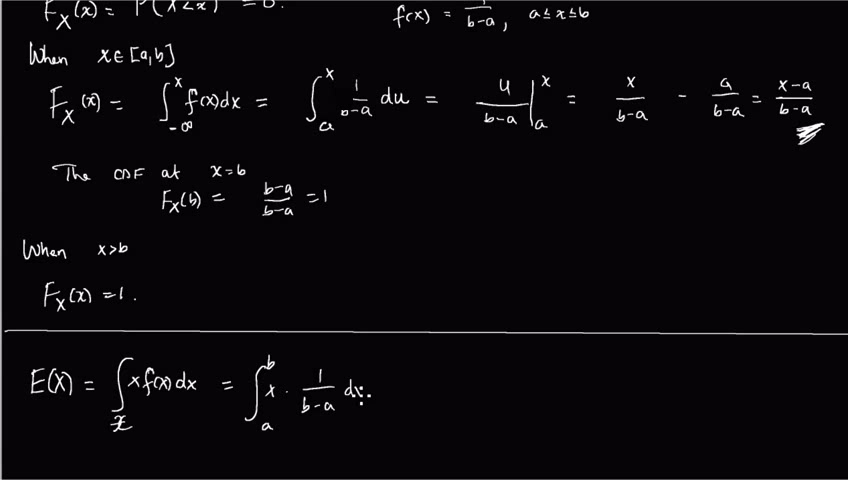 F_X(x) = P(X<x) = 0.
f(x) = 1/(b-a), a≤x≤b
When x∈[a,b]
F_X(x) = ∫_{-∞}^{x} f(x)dx = ∫_a^x 1/(b-a) du = u/(b-a) |_a^x = x/(b-a) - a/(b-a) = (x-a)/(b-a)
The CDF at x=b
F_X(b) = (b-a)/(b-a) = 1
When x>b
F_X(x) = 1.
E(X) = ∫_x x f(x) dx = ∫_a^b x · 1/(b-a) dx